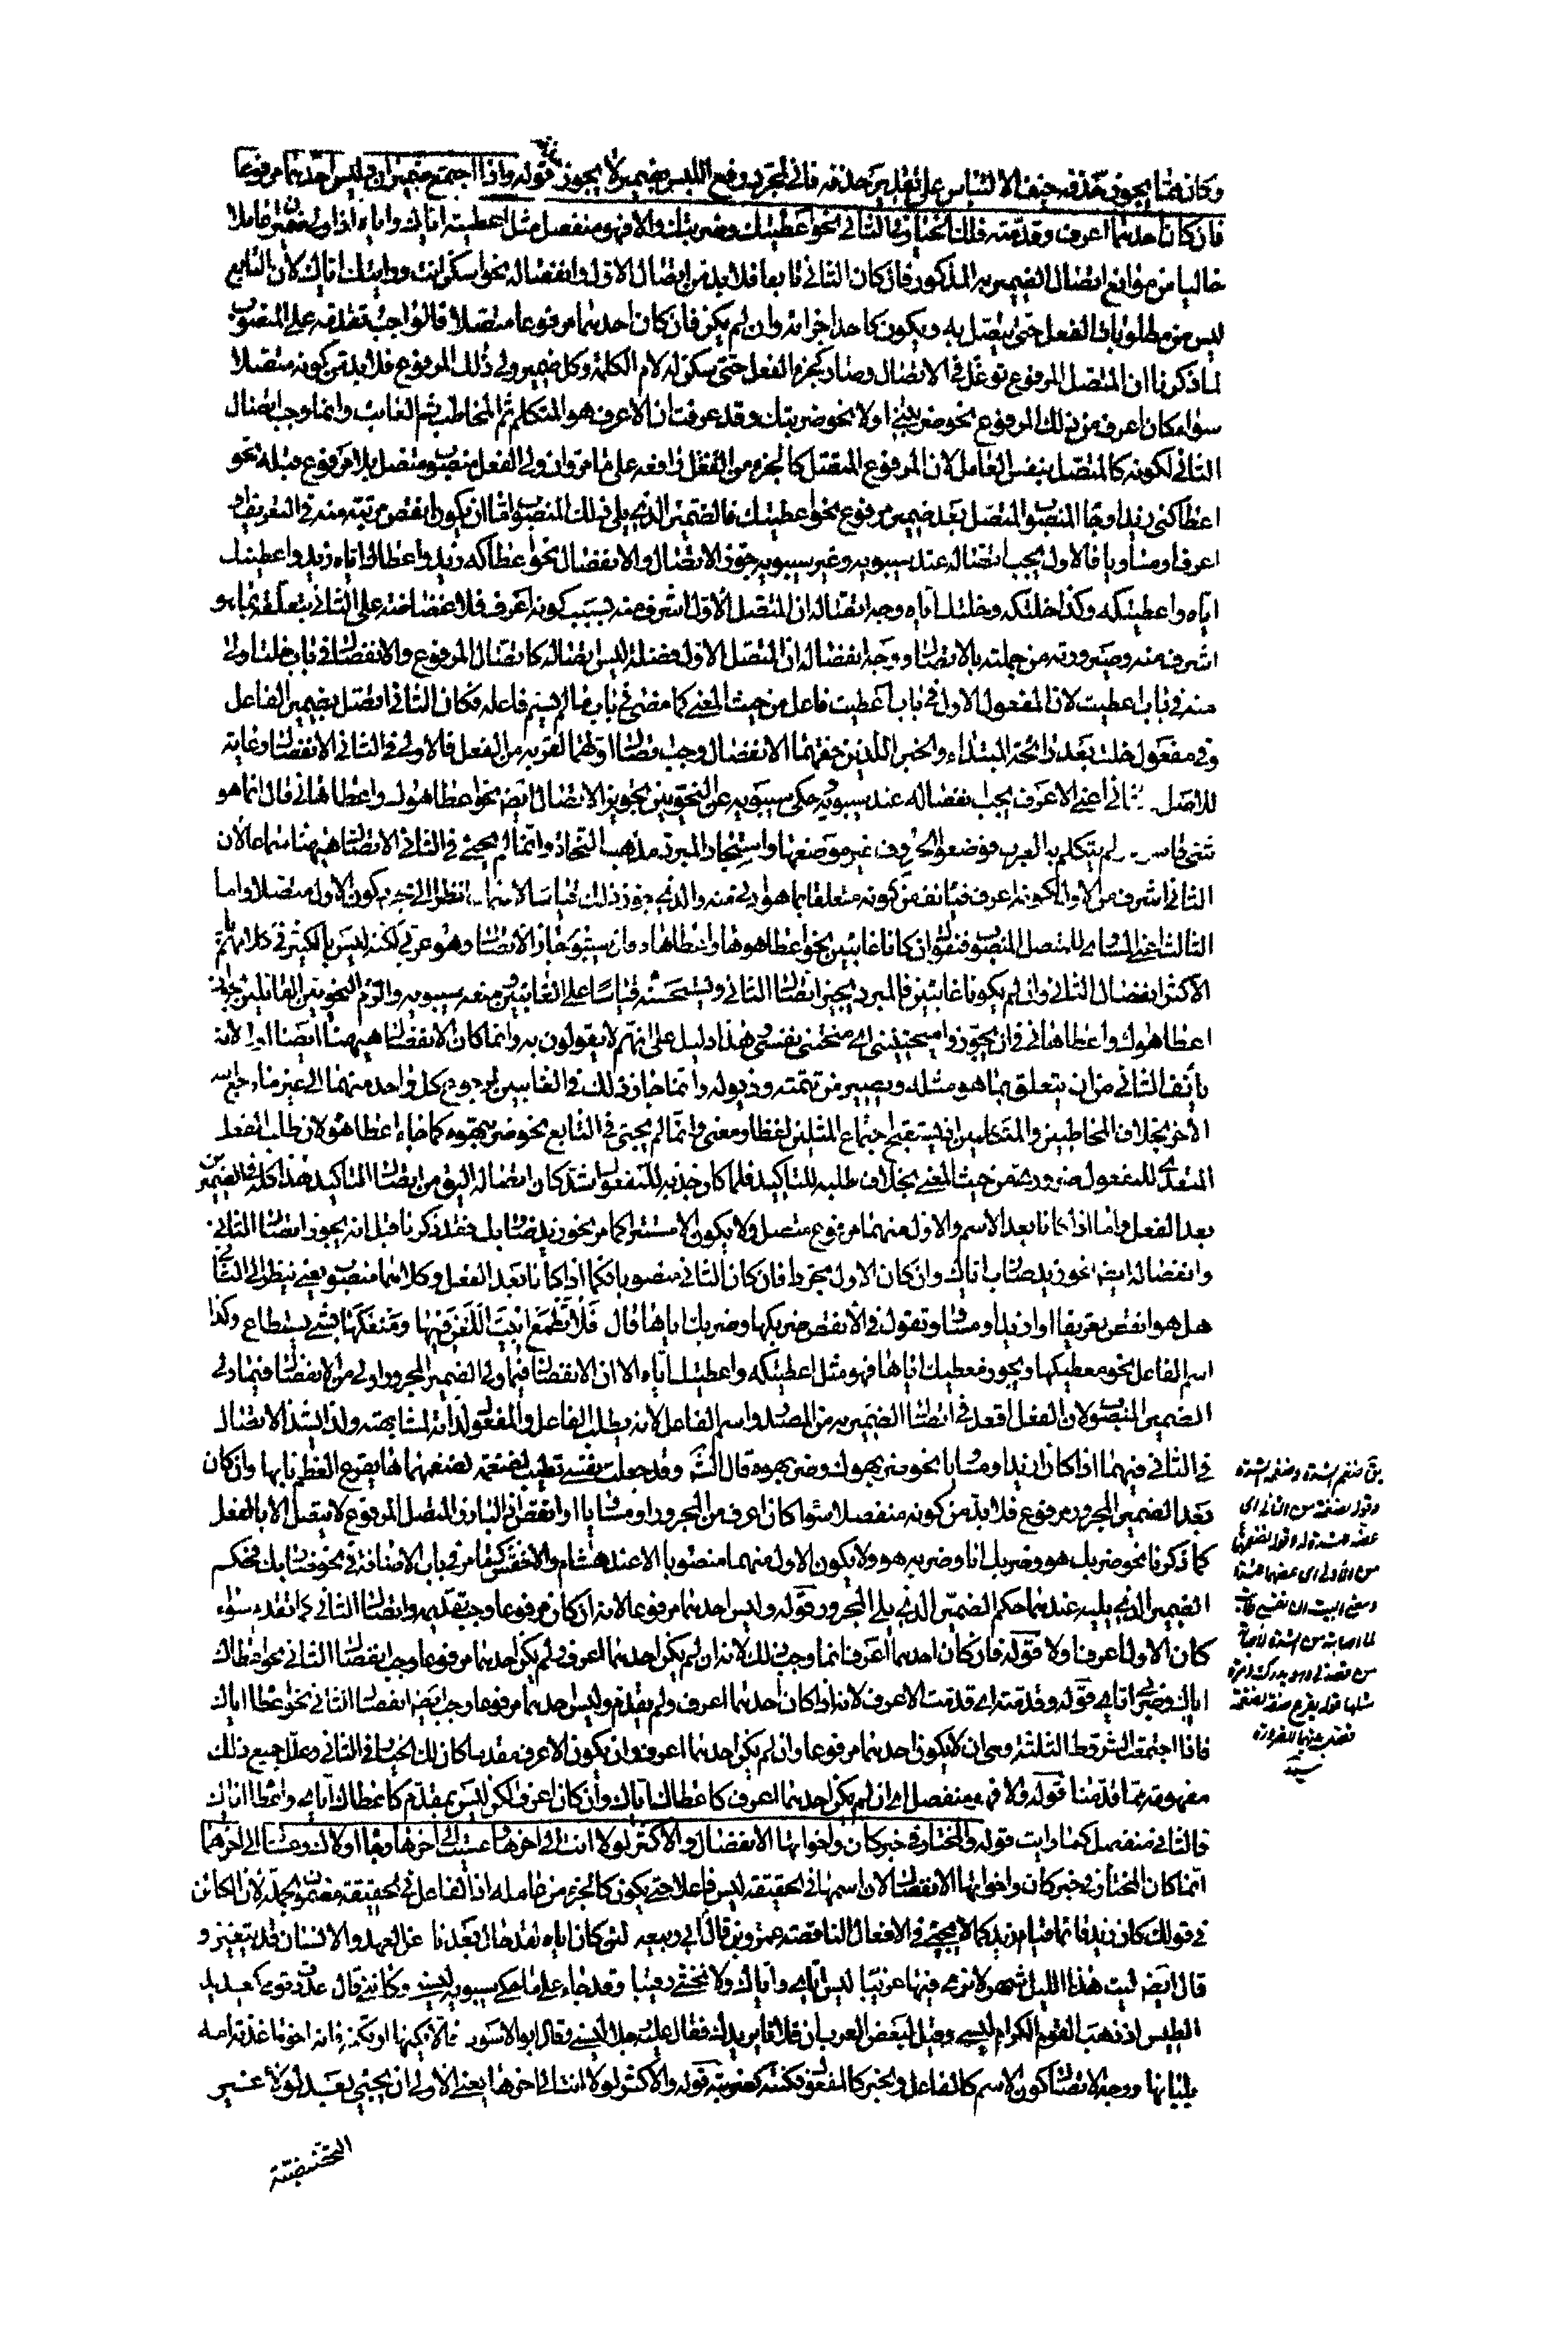 وكان ايضا يجوز حذفه حيث الالتباس على تقدير حذفه فاني لمجرد وضع اللبس بضمير لا يجوز قوله واذا اجتمع ضميران وليس احدهما مرفوعا
فان كان احدهما اعرف وقدمته فلك الخيار في الثاني نحو اعطيتك وضربيك والا فهو منفصل مثل اعطيته اياك واياه اذا ولي ضميران عاملا
خاليا من موانع اتصال الضمير به المذكور فان كان الثاني تابعا فلا بد من اتصال الاول وانفصاله نحو اسكن انت ورايتك اياك لان التابع
ليس من مطلوبات الفعل حتى يتصل به ويكون كاحد اجزائه وان لم يكن فان كان احدهما مرفوعا متصلا فالواجب تقدمه على المنصوب
لما ذكرنا ان المتصل المرفوع توغل في الاتصال وصار كجزء الفعل حتى سكن له لام الكلمة وكل ضمير ولي ذلك المرفوع فلا بد من كونه متصلا
سواء كان اعرف من ذلك المرفوع نحو ضربتني او لا نحو ضربتك وقد عرفت ان الاعرف هو المتكلم ثم المخاطب ثم الغائب وانما وجب اتصال
الثاني لكونه كالمتصل بنفس العامل لان المرفوع المتصل كالجزء من الفعل رافعه على ما مر وان ولي الفعل منصوب متصل بلا مرفوع قبله نحو
اعطاكني زيد او جاء المنصوب المتصل بعد ضمير مرفوع نحو اعطيتك فالضمير الذي يلي ذلك المنصوب اما ان يكون انقص مرتبة منه في التعريف او
اعرف او مساويا فالاول يجب اتصاله عند سيبويه وغير سيبويه جوز الاتصال والانفصال نحو اعطاكه زيد واعطاك اياه زيد واعطيتك
اياه واعطيتكه وكذا خلتكه وخلتك اياه وجه اتصاله ان المتصل الاول اشرف منه بسبب كونه اعرف فلا غضاضة على الثاني بتعلقه بما هو
اشرف منه وصيرورته من جملته بالاتصال ووجه انفصاله ان المتصل الاول فضلة ليس اتصاله كاتصال المرفوع والانفصال في باب خلت اولى
منه في باب اعطيت لان المفعول الاول في باب اعطيت فاعل من حيث المعنى كما مضى في باب ما لم يسم فاعله فكان الثاني اتصل بضمير الفاعل
وفي مفعولي خلت بعد رائحة المبتداء والخبر اللذين حقهما الانفصال وجب اتصال اولهما لقربه من الفعل فالاولى في الثاني الانفصال رعاية
للاصل والثاني اعني الاعرف يجب انفصاله عند سيبويه حكى سيبويه عن النحويين تجويز الاتصال ايضا نحو اعطاهوك واعطاهاني قال انما هو
شيء قاسوه لم يتكلم به العرب فوضعوا الحروف غير موضعها واستجاد المبرد مذهب النحاة وانما لم يجئ في الثاني الاتصال ههنا سماعا لان
الثاني اشرف من الاول لكونه اعرف فيأنف من كونه متعلقا بما هو ادنى منه والذي جوز ذلك قياسا لا سماعا نظر الى مجرد كون الاول متصلا واما
الثالث اعني المساوي للمتصل المنصوب فنقول ان كانا غائبين نحو اعطاهوها واعطاهاه فان سيبويه جوز الاتصال وهو عربي لكنه ليس بالكثير في كلامهم بل
الاكثر انفصال الثاني وان لم يكونا غائبين فالمبرد يجيز اتصال الثاني ويستحسنه قياسا على الغائبين ومنعه سيبويه والزم النحويين القائلين بجواز
اعطاهوك واعطاهاني في ان يجوزوا منحتنيني اي منحتني نفسي هذا دليل على انهم لا يقولون به وانما كان الانفصال ههنا ايضا اولى لانه
يأنف الثاني من ان يتعلق بما هو مثله ويصير من تتمته وذيوله وانما جاز ذلك في الغائبين لرجوع كل واحد منهما الى غير ما رجع اليه
الاخر بخلاف المخاطبين والمتكلمين فيستقبح اجتماع المثلين لفظا ومعنى وانما لم يجئ في التابع نحو ضربهوه كما جاء اعطاهوه لان طلب الفعل
المتعدي للمفعول ضروري من حيث المعنى بخلاف طلبه للتاكيد فلما كان جذبه للمفعول اشد كان اتصاله اليق من اتصال التاكيد هذا كله في الضميرين
بعد الفعل واما اذا كانا بعد الاسم والاول منهما مرفوع متصل ولا يكون الا مستترا كما مر نحو زيد ضاربك فقد ذكرنا قبل انه يجوز اتصال الثاني
وانفصاله ايضا نحو زيد ضارب اياك وان كان الاول مجرورا فان كان الثاني منصوبا فكما اذا كانا بعد الفعل وكلاهما منصوب يعني ينظر الى الثاني
هل هو انقص تعريفا او ازيد او مساو وتقول في الانقص ضربكها وضربك اياها قال فلا تطمع ابيت اللعن فيها ومنعكها بشيء يستطاع وكذا
اسم الفاعل نحو معطيكها ويجوز معطيك اياها فهو مثل اعطيتكه واعطيتك اياه الا ان الانفصال فيما ولي الضمير المجرور اولى من الانفصال فيما ولي
الضمير المنصوب لان الفعل اقعد في اتصال الضمير به من المصدر واسم الفاعل لانه يطلب الفاعل والمفعول لذاته لمشابهته ولذا شذ الاتصال
في الثاني فيهما اذا كان ازيد او مساويا نحو ضربهوك وضربهوه قال الشاعر وقد جعلت نفسي تطيب لضغمة لضغمهماها يقرع العظم نابها وان كان
بعد الضمير المجرور مرفوع فلا بد من كونه منفصلا سواء كان اعرف من المجرور او مساويا او انقص اذ البارز المتصل المرفوع لا يتصل الا بالفعل
كما ذكرنا نحو ضربك هو وضربك انا وضربه هو ولا يكون الاول منهما منصوبا الا عند هشام والاخفش كما مر في باب الاضافة في نحو ضاربك فحكم
الضمير الذي يليه عندهما حكم الضمير الذي يلي المجرور قوله وليس احدهما مرفوعا لانه ان كان مرفوعا وجب تقديمه واتصال الثاني كما تقدم سواء
كان الاول اعرف او لا قوله فان كان احدهما اعرف انما وجب ذلك لانه ان لم يكن احدهما اعرف ولم يكن احدهما مرفوعا وجب انفصال الثاني نحو اعطاك
اياك وضربي اياي قوله وقدمته اي قدمت الاعرف لانه اذا كان احدهما اعرف ولم يقدم وليس احدهما مرفوعا وجب ايضا انفصال الثاني نحو اعطاه اياك
فاذا اجتمعت الشروط الثلثة وهي ان لا يكون احدهما مرفوعا وان لم يكن احدهما اعرف وان يكون الاعرف مقدما كان لك الخيار في الثاني وعلل جميع ذلك
مفهومة مما قدمنا قوله والا فهو منفصل اي ان لم يكن احدهما اعرف كاعطاك اياك وان كان اعرف لكن ليس بمقدم كاعطاك اياي واعطاه اياك
فالثاني منفصل كما رايت قوله والمختار في خبر كان واخواتها الانفصال والاكثر لولا انت الى اخرها وعسيت الى اخرها وجاء لولاك وعساك الى اخرهما
انما كان المختار في خبر كان واخواتها الانفصال لان اسمها في الحقيقة ليس فاعلا حتى يكون كالجزء من عامله اذ الفاعل في الحقيقة مضمون الجملة لان الكائن
في قولك كان زيد قائما قيام زيد كما يجئ في الافعال الناقصة عمرو بن قال ابي ربيعه لئن كان اياه لقد حال بعدنا عن العهد والانسان قد يتغير و
قال ايضا ليت هذا الليل شهر لا نرى فيها عريبا ليس اياي واياك ولا نخشى رقيبا وقد جاء على ما حكى سيبويه ليسني وكانني قال عددت قومي كعديد
الطيس اذ ذهب القوم الكرام ليسي وقيل لبعض العرب ان فلانا يريدك فقال عليه رجلا ليسني وقال ابو الاسود فان لا يكنها او تكنه فانه اخوها غذته امه
بلبانها ووجه الاتصال كون الاسم كالفاعل والخبر كالمفعول فكنته كضربته قوله والاكثر لولا انت الى اخرها يعني الاولى ان يجئ بعد لولا غير
التحضيضية
سيد